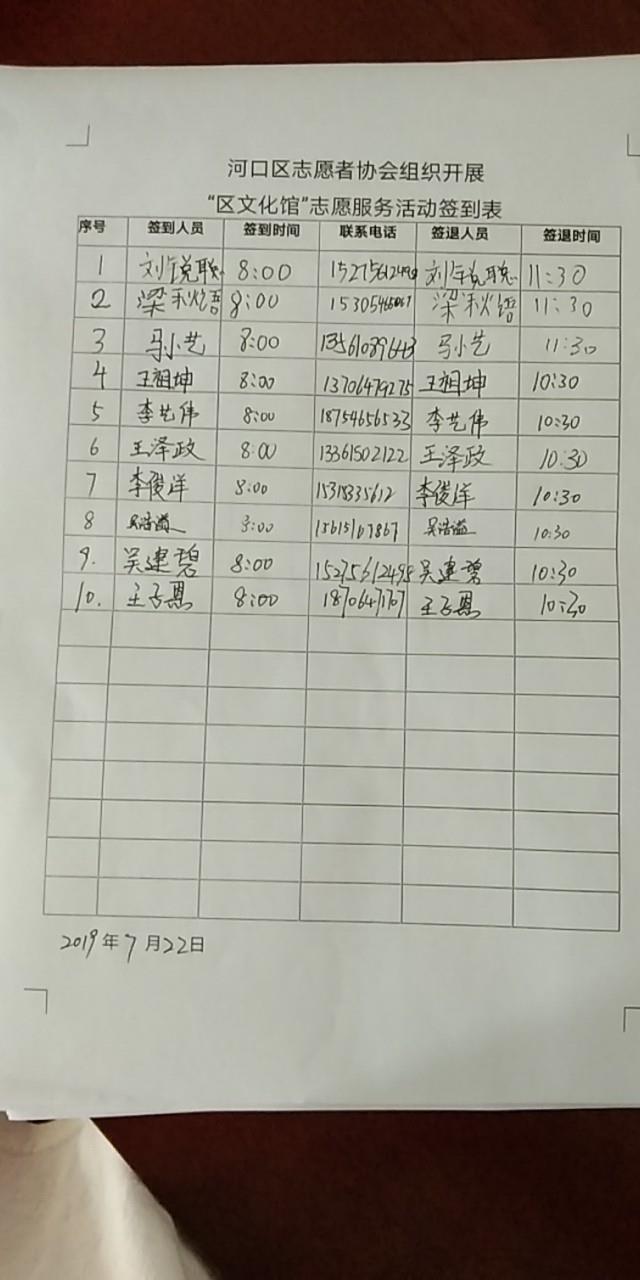 河口区志愿者协会组织开展
“区文化馆”志愿服务活动签到表
序号 签到人员 签到时间 联系电话 签退人员 签退时间
1 8:00 11:30
2 梁秋语 8:00 梁秋语 11:30
3 马小艺 8:00 马小艺 11:30
4 王祖坤 8:00 13706479275 王祖坤 10:30
5 李艺伟 8:00 18754656533 李艺伟 10:30
6 王泽政 8:00 13361502122 王泽政 10:30
7 李俊洋 8:00 李俊洋 10:30
8 8:00 10:30
9. 吴建碧 8:00 15275612498 吴建碧 10:30
10. 王子恩 8:00 王子恩 10:30
2019年7月22日